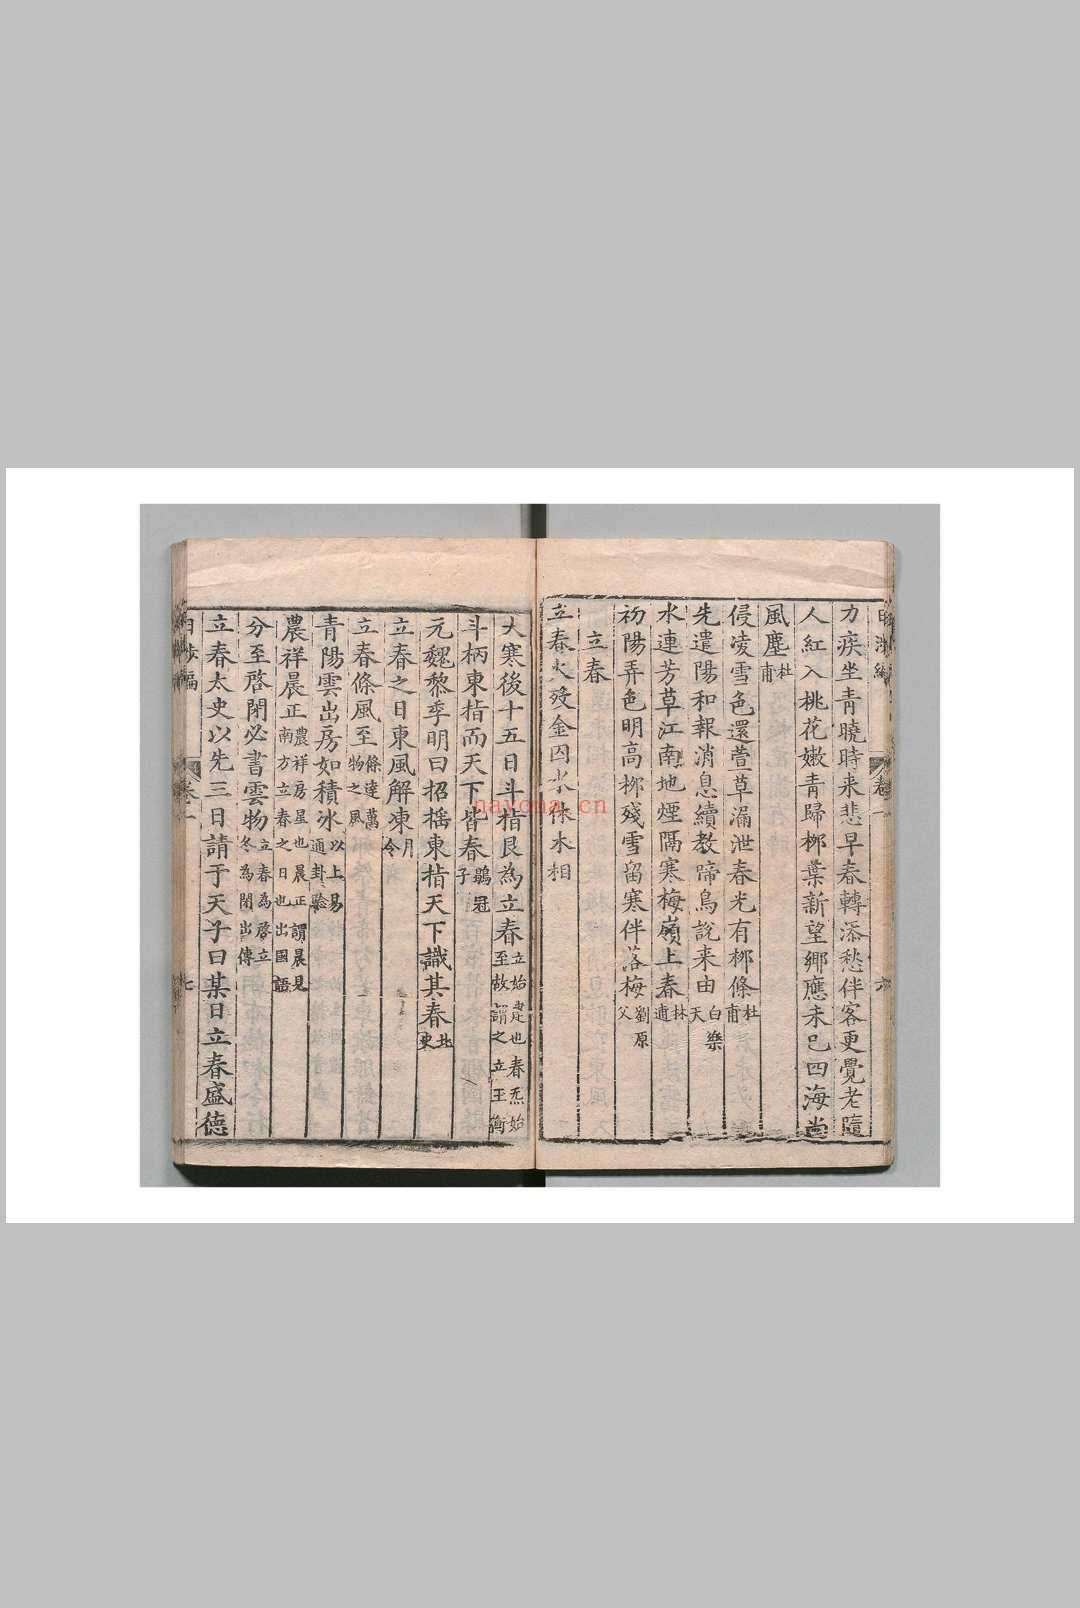 力疾坐青曉時来悲早春轉添愁伴客更覺老隨
人紅入桃花嫩青歸栁葉新望鄉應未已四海尚
風塵杜甫
侵凌雪色還萱草漏泄春光有栁條杜甫
先遣陽和報消息續教蹄鳥說来由白樂天
水連芳草江南地煙隔寒梅嶺上春林逋
初陽弄色明高栁殘雪留寒伴落梅劉原父
立春
立春火殁金囚水休木相
大寒後十五日斗指艮為立春立始建也春炁始至故謂之立王衡
斗柄東指而天下皆春鶡冠子
元魏黎季明曰招揺東指天下識其春北史
立春之日東風解凍月令
立春條風至條達萬物之風
青陽雲出房如積冰以上易通卦驗
農祥晨正農祥房星也晨正謂晨見南方立春之日也出國語
分至啓閉必書雲物立春為啓立冬為閉出傳
立春太史以先三日請于天子曰某日立春盛德
日涉編
卷一
七
nayona.cn
日涉編
卷一
六